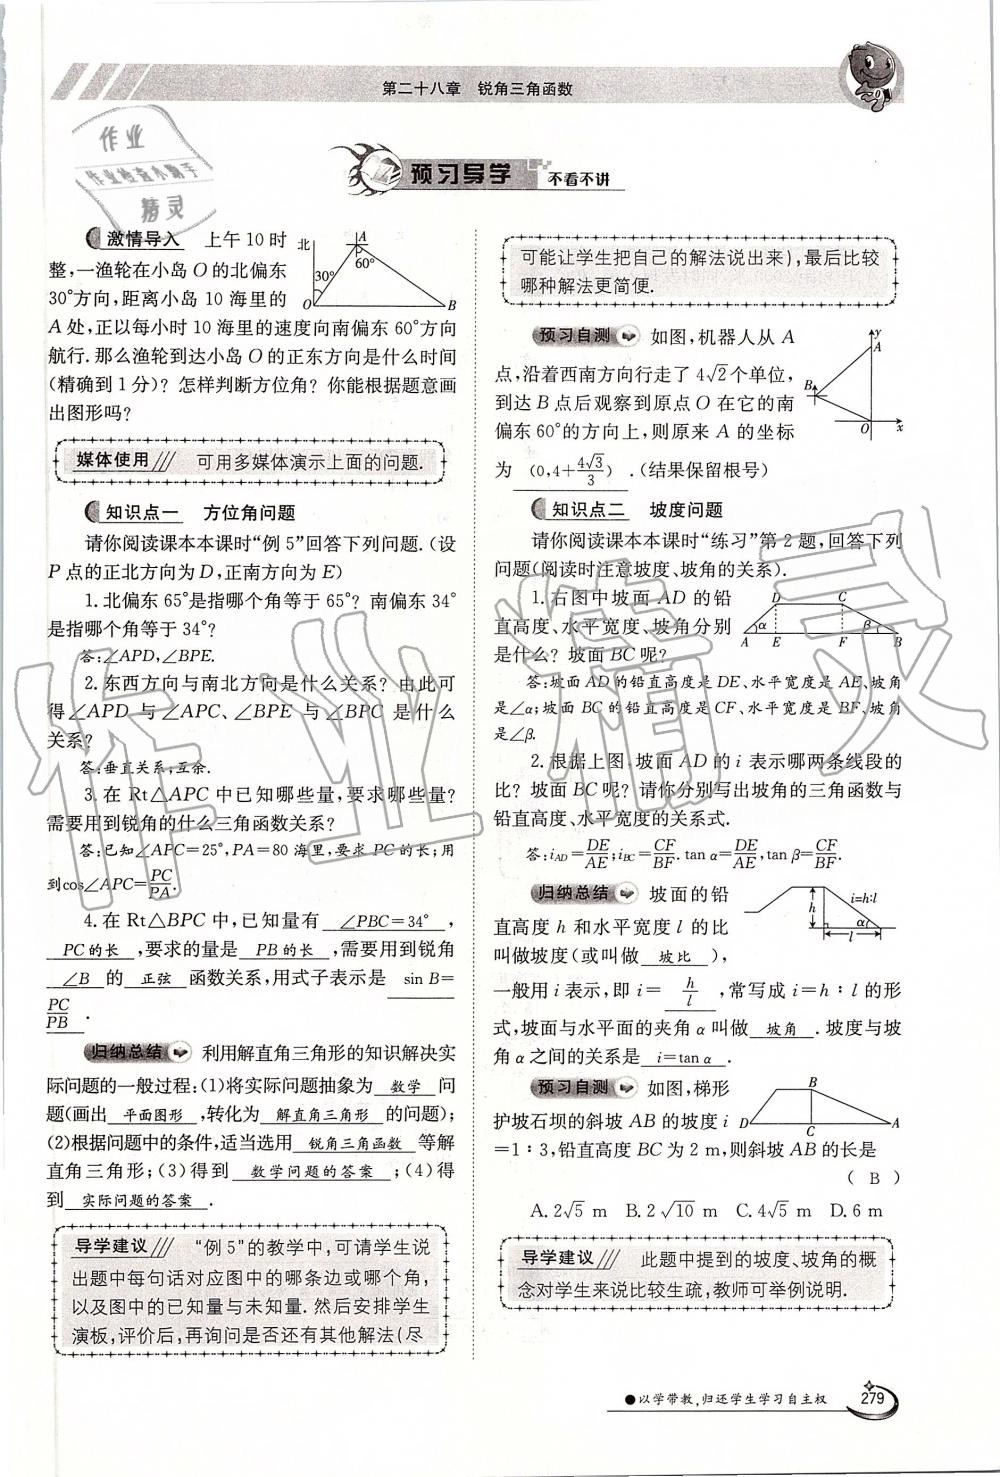 第二十八章　锐角三角函数
作业
作业检查小助手
精灵
预习导学　不看不讲
激情导入　上午 10 时
整,一渔轮在小岛 O 的北偏东
30°方向,距离小岛 10 海里的
A 处,正以每小时 10 海里的速度向南偏东 60°方向
航行. 那么渔轮到达小岛 O 的正东方向是什么时间
(精确到 1 分)? 怎样判断方位角? 你能根据题意画
出图形吗?
北 A 60° 30° O B
媒体使用　可用多媒体演示上面的问题.
知识点一　方位角问题
请你阅读课本本课时“例 5”回答下列问题.(设
P 点的正北方向为 D,正南方向为 E)
1. 北偏东 65°是指哪个角等于 65°? 南偏东 34°
是指哪个角等于 34°?
答:∠APD,∠BPE.
2. 东西方向与南北方向是什么关系? 由此可
得∠APD 与∠APC、∠BPE 与∠BPC 是什么
关系?
答:垂直关系,互余.
3. 在 Rt△APC 中已知哪些量,要求哪些量?
需要用到锐角的什么三角函数关系?
答:已知∠APC=25°,PA=80 海里,要求 PC 的长;用
到cos∠APC=PC/PA.
4. 在 Rt△BPC 中,已知量有 ∠PBC=34° ,
PC 的长 ,要求的量是 PB 的长 ,需要用到锐角
∠B 的 正弦 函数关系,用式子表示是 sin B=
PC/PB .
归纳总结　利用解直角三角形的知识解决实
际问题的一般过程:(1)将实际问题抽象为 数学 问
题(画出 平面图形 ,转化为 解直角三角形 的问题);
(2)根据问题中的条件,适当选用 锐角三角函数 等解
直角三角形;(3)得到 数学问题的答案 ;(4)得
到 实际问题的答案 .
导学建议　“例 5”的教学中,可请学生说
出题中每句话对应图中的哪条边或哪个角,
以及图中的已知量与未知量. 然后安排学生
演板,评价后,再询问是否还有其他解法(尽
可能让学生把自己的解法说出来),最后比较
哪种解法更简便.
预习自测　如图,机器人从 A
点,沿着西南方向行走了 4√2个单位,
到达 B 点后观察到原点 O 在它的南
偏东 60°的方向上,则原来 A 的坐标
为 (0,4+4√3/3) .(结果保留根号)
y A B O x
知识点二　坡度问题
请你阅读课本本课时“练习”第 2 题,回答下列
问题(阅读时注意坡度、坡角的关系).
1. 右图中坡面 AD 的铅
直高度、水平宽度、坡角分别
是什么? 坡面 BC 呢?
D C α β A E F B
答:坡面 AD 的铅直高度是 DE、水平宽度是 AE、坡角
是∠α;坡面 BC 的铅直高度是 CF、水平宽度是 BF、坡角
是∠β.
2. 根据上图,坡面 AD 的 i 表示哪两条线段的
比? 坡面 BC 呢? 请你分别写出坡角的三角函数与
铅直高度、水平宽度的关系式.
答:i_AD=DE/AE;i_BC=CF/BF. tan α=DE/AE,tan β=CF/BF.
归纳总结　坡面的铅
直高度 h 和水平宽度 l 的比
叫做坡度(或叫做 坡比 ),
一般用 i 表示,即 i= h/l ,常写成 i=h∶l 的形
式,坡面与水平面的夹角 α 叫做 坡角 . 坡度与坡
角 α 之间的关系是 i=tan α .
h i=h∶l α l
预习自测　如图,梯形
护坡石坝的斜坡 AB 的坡度 i
=1∶3,铅直高度 BC 为 2 m,则斜坡 AB 的长是
( B )
B D C A
A. 2√5 m　B. 2√10 m　C. 4√5 m　D. 6 m
导学建议　此题中提到的坡度、坡角的概
念对学生来说比较生疏,教师可举例说明.
作业精灵
●以学带教,归还学生学习自主权
279